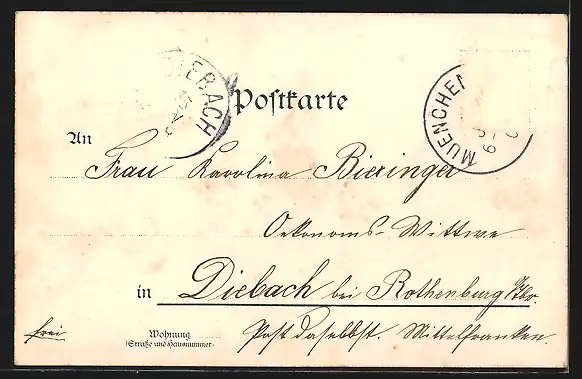 DIEBACH
MUENCHEN
Postkarte
An
Frau Karolina Bieringer
Oekonoms-Wittwe
in Diebach bei Rothenburg a/Tbr.
Post daselbst. Mittelfranken.
frei
Wohnung
(Straße und Hausnummer)